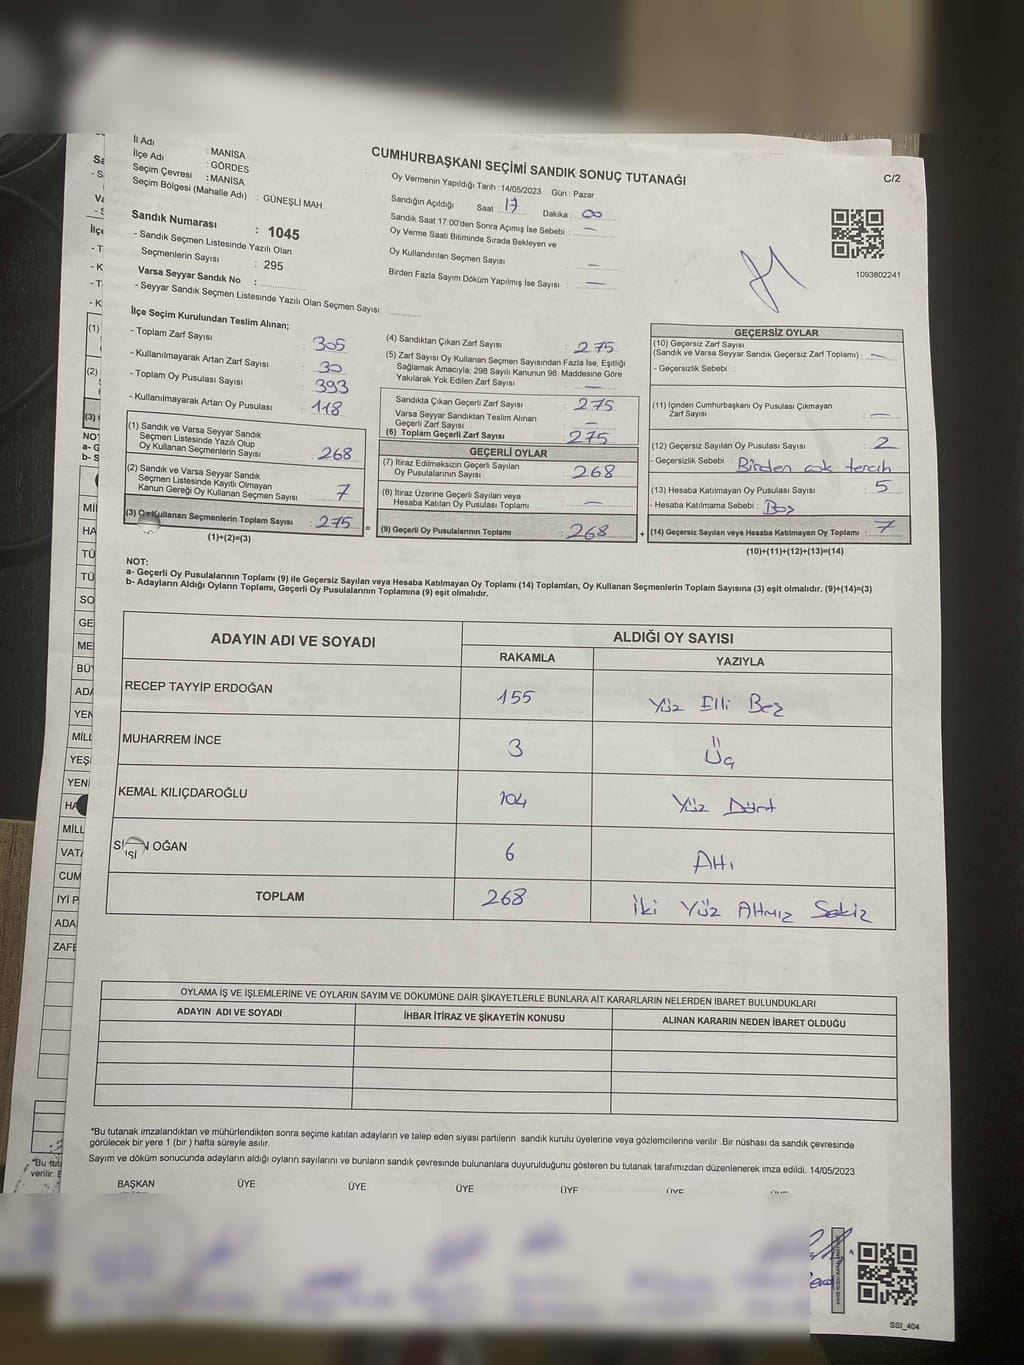 İl Adı : MANİSA
İlçe Adı : GÖRDES
Seçim Çevresi : MANİSA
Seçim Bölgesi (Mahalle Adı) : GÜNEŞLİ MAH.
Sandık Numarası : 1045
- Sandık Seçmen Listesinde Yazılı Olan
Seçmenlerin Sayısı : 295
Varsa Seyyar Sandık No :
- Seyyar Sandık Seçmen Listesinde Yazılı Olan Seçmen Sayısı:
CUMHURBAŞKANI SEÇİMİ SANDIK SONUÇ TUTANAĞI
C/2
Oy Vermenin Yapıldığı Tarih : 14/05/2023 Gün : Pazar
Sandığın Açıldığı Saat : 17 Dakika : 00
Sandık Saat 17.00'den Sonra Açımış İse Sebebi : —
Oy Verme Saati Bitiminde Sırada Bekleyen ve
Oy Kullandırılan Seçmen Sayısı : —
Birden Fazla Sayım Döküm Yapılmış İse Sayısı : —
1093802241
İlçe Seçim Kurulundan Teslim Alınan;
- Toplam Zarf Sayısı : 305
- Kullanılmayarak Artan Zarf Sayısı : 30
- Toplam Oy Pusulası Sayısı : 393
- Kullanılmayarak Artan Oy Pusulası : 118
(1) Sandık ve Varsa Seyyar Sandık
Seçmen Listesinde Yazılı Olup
Oy Kullanan Seçmenlerin Sayısı : 268
(2) Sandık ve Varsa Seyyar Sandık
Seçmen Listesinde Kayıtlı Olmayan
Kanun Gereği Oy Kullanan Seçmen Sayısı : 7
(3) Oy Kullanan Seçmenlerin Toplam Sayısı : 275 =
(1)+(2)=(3)
(4) Sandıktan Çıkan Zarf Sayısı : 275
(5) Zarf Sayısı Oy Kullanan Seçmen Sayısından Fazla İse, Eşitliği
Sağlamak Amacıyla; 298 Sayılı Kanunun 98. Maddesine Göre
Yakılarak Yok Edilen Zarf Sayısı : —
Sandıkta Çıkan Geçerli Zarf Sayısı : 275
Varsa Seyyar Sandıktan Teslim Alınan
Geçerli Zarf Sayısı : —
(6) Toplam Geçerli Zarf Sayısı : 275
GEÇERLİ OYLAR
(7) İtiraz Edilmeksizin Geçerli Sayılan
Oy Pusulalarının Sayısı : 268
(8) İtiraz Üzerine Geçerli Sayılan veya
Hesaba Katılan Oy Pusulası Toplamı : —
(9) Geçerli Oy Pusulalarının Toplamı : 268 +
GEÇERSİZ OYLAR
(10) Geçersiz Zarf Sayısı
(Sandık ve Varsa Seyyar Sandık Geçersiz Zarf Toplamı) : —
- Geçersizlik Sebebi :
(11) İçinden Cumhurbaşkanı Oy Pusulası Çıkmayan
Zarf Sayısı : —
(12) Geçersiz Sayılan Oy Pusulası Sayısı : 2
- Geçersizlik Sebebi : Birden çok tercih
(13) Hesaba Katılmayan Oy Pusulası Sayısı : 5
- Hesaba Katılmama Sebebi : Boş
(14) Geçersiz Sayılan veya Hesaba Katılmayan Oy Toplamı : 7
(10)+(11)+(12)+(13)=(14)
NOT:
a- Geçerli Oy Pusulalarının Toplamı (9) ile Geçersiz Sayılan veya Hesaba Katılmayan Oy Toplamı (14) Toplamları, Oy Kullanan Seçmenlerin Toplam Sayısına (3) eşit olmalıdır. (9)+(14)=(3)
b- Adayların Aldığı Oyların Toplamı, Geçerli Oy Pusulalarının Toplamına (9) eşit olmalıdır.
ADAYIN ADI VE SOYADI ALDIĞI OY SAYISI
RAKAMLA YAZIYLA
RECEP TAYYİP ERDOĞAN 155 Yüz Elli Beş
MUHARREM İNCE 3 Üç
KEMAL KILIÇDAROĞLU 104 Yüz Dört
OĞAN 6 Altı
TOPLAM 268 İki Yüz Altmış Sekiz
OYLAMA İŞ VE İŞLEMLERİNE VE OYLARIN SAYIM VE DÖKÜMÜNE DAİR ŞİKAYETLERLE BUNLARA AİT KARARLARIN NELERDEN İBARET BULUNDUKLARI
ADAYIN ADI VE SOYADI İHBAR İTİRAZ VE ŞİKAYETİN KONUSU ALINAN KARARIN NEDEN İBARET OLDUĞU
*Bu tutanak imzalandıktan ve mühürlendikten sonra seçime katılan adayların ve talep eden siyasi partilerin sandık kurulu üyelerine veya gözlemcilerine verilir .Bir nüshası da sandık çevresinde
görülecek bir yere 1 (bir ) hafta süreyle asılır.
Sayım ve döküm sonucunda adayların aldığı oyların sayılarını ve bunların sandık çevresinde bulunanlara duyurulduğunu gösteren bu tutanak tarafımızdan düzenlenerek imza edildi. 14/05/2023
BAŞKAN ÜYE ÜYE ÜYE ÜYE ÜYE
SSI_404